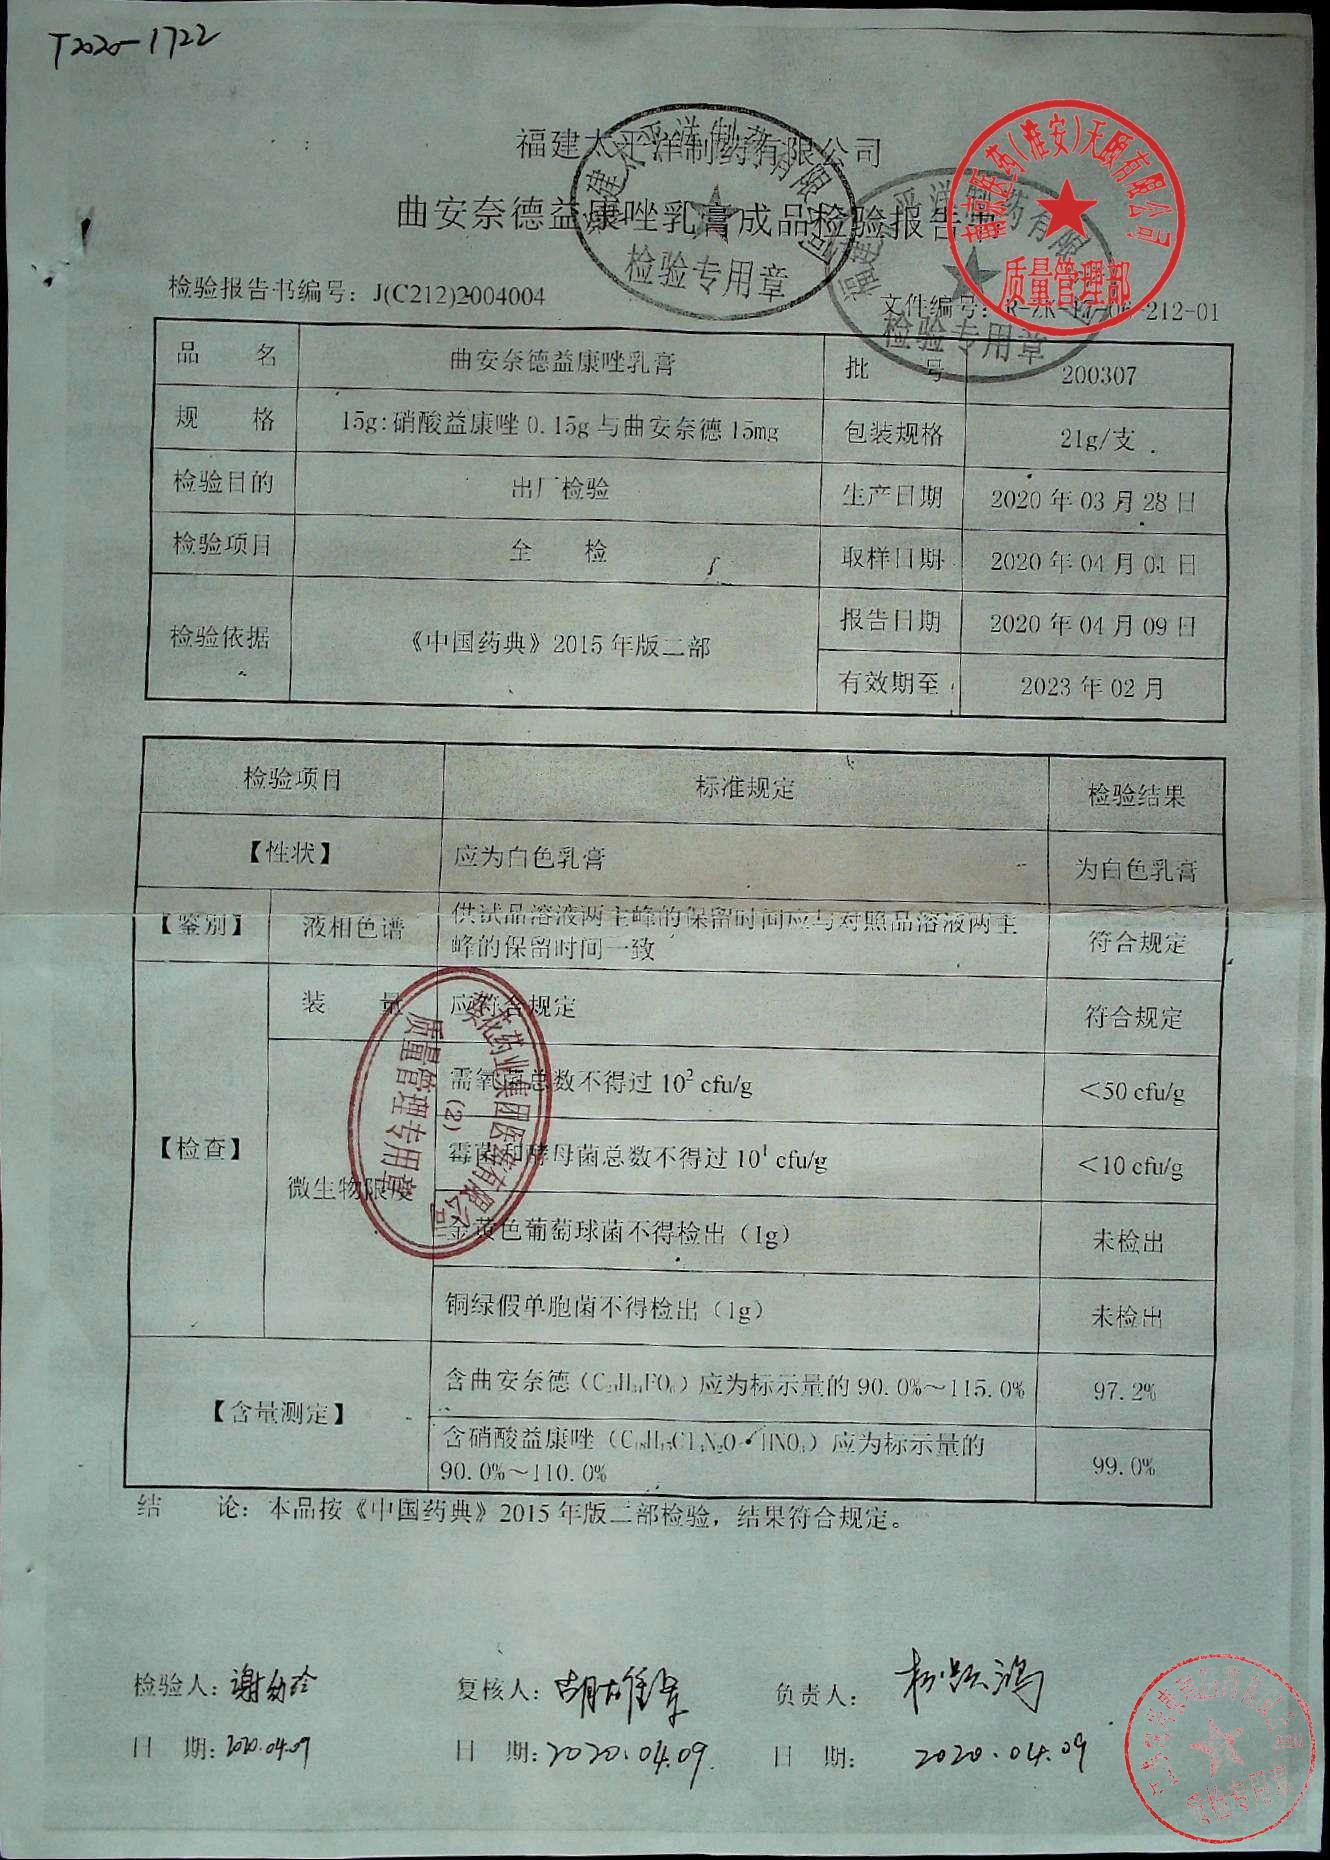 T2020-1722
福建太平洋制药有限公司
曲安奈德益康唑乳膏成品检验报告书
检验报告书编号：J(C212)2004004
文件编号：R-ZK-17-06-212-01
福建太平洋制药有限公司
检验专用章
福建太平洋制药有限公司
检验专用章
南京医药(淮安)天颐有限公司
质量管理部
品 名 曲安奈德益康唑乳膏 批 号 200307
规 格 15g:硝酸益康唑0.15g与曲安奈德15mg 包装规格 21g/支
检验目的 出厂检验 生产日期 2020年03月28日
检验项目 全 检 取样日期 2020年04月01日
检验依据 《中国药典》2015年版二部 报告日期 2020年04月09日
有效期至 2023年02月
检验项目 标准规定 检验结果
【性状】 应为白色乳膏 为白色乳膏
【鉴别】 液相色谱 供试品溶液两主峰的保留时间应与对照品溶液两主
峰的保留时间一致 符合规定
【检查】 装 量 应符合规定 符合规定
微生物限度 需氧菌总数不得过10² cfu/g <50 cfu/g
霉菌和酵母菌总数不得过10¹ cfu/g <10 cfu/g
金黄色葡萄球菌不得检出（1g） 未检出
铜绿假单胞菌不得检出（1g） 未检出
葵花药业集团医药有限公司
(2)
质量管理专用章
【含量测定】 含曲安奈德（C₂₄H₃₁FO₆）应为标示量的90.0%～115.0% 97.2%
含硝酸益康唑（C₁₈H₁₅Cl₃N₂O·HNO₃）应为标示量的
90.0%～110.0% 99.0%
结 论：本品按《中国药典》2015年版二部检验，结果符合规定。
检验人：谢幼珍 复核人：胡雄 负责人：
日 期：2020.04.09 日 期：2020.04.09. 日 期：2020.04.09
质检专用章